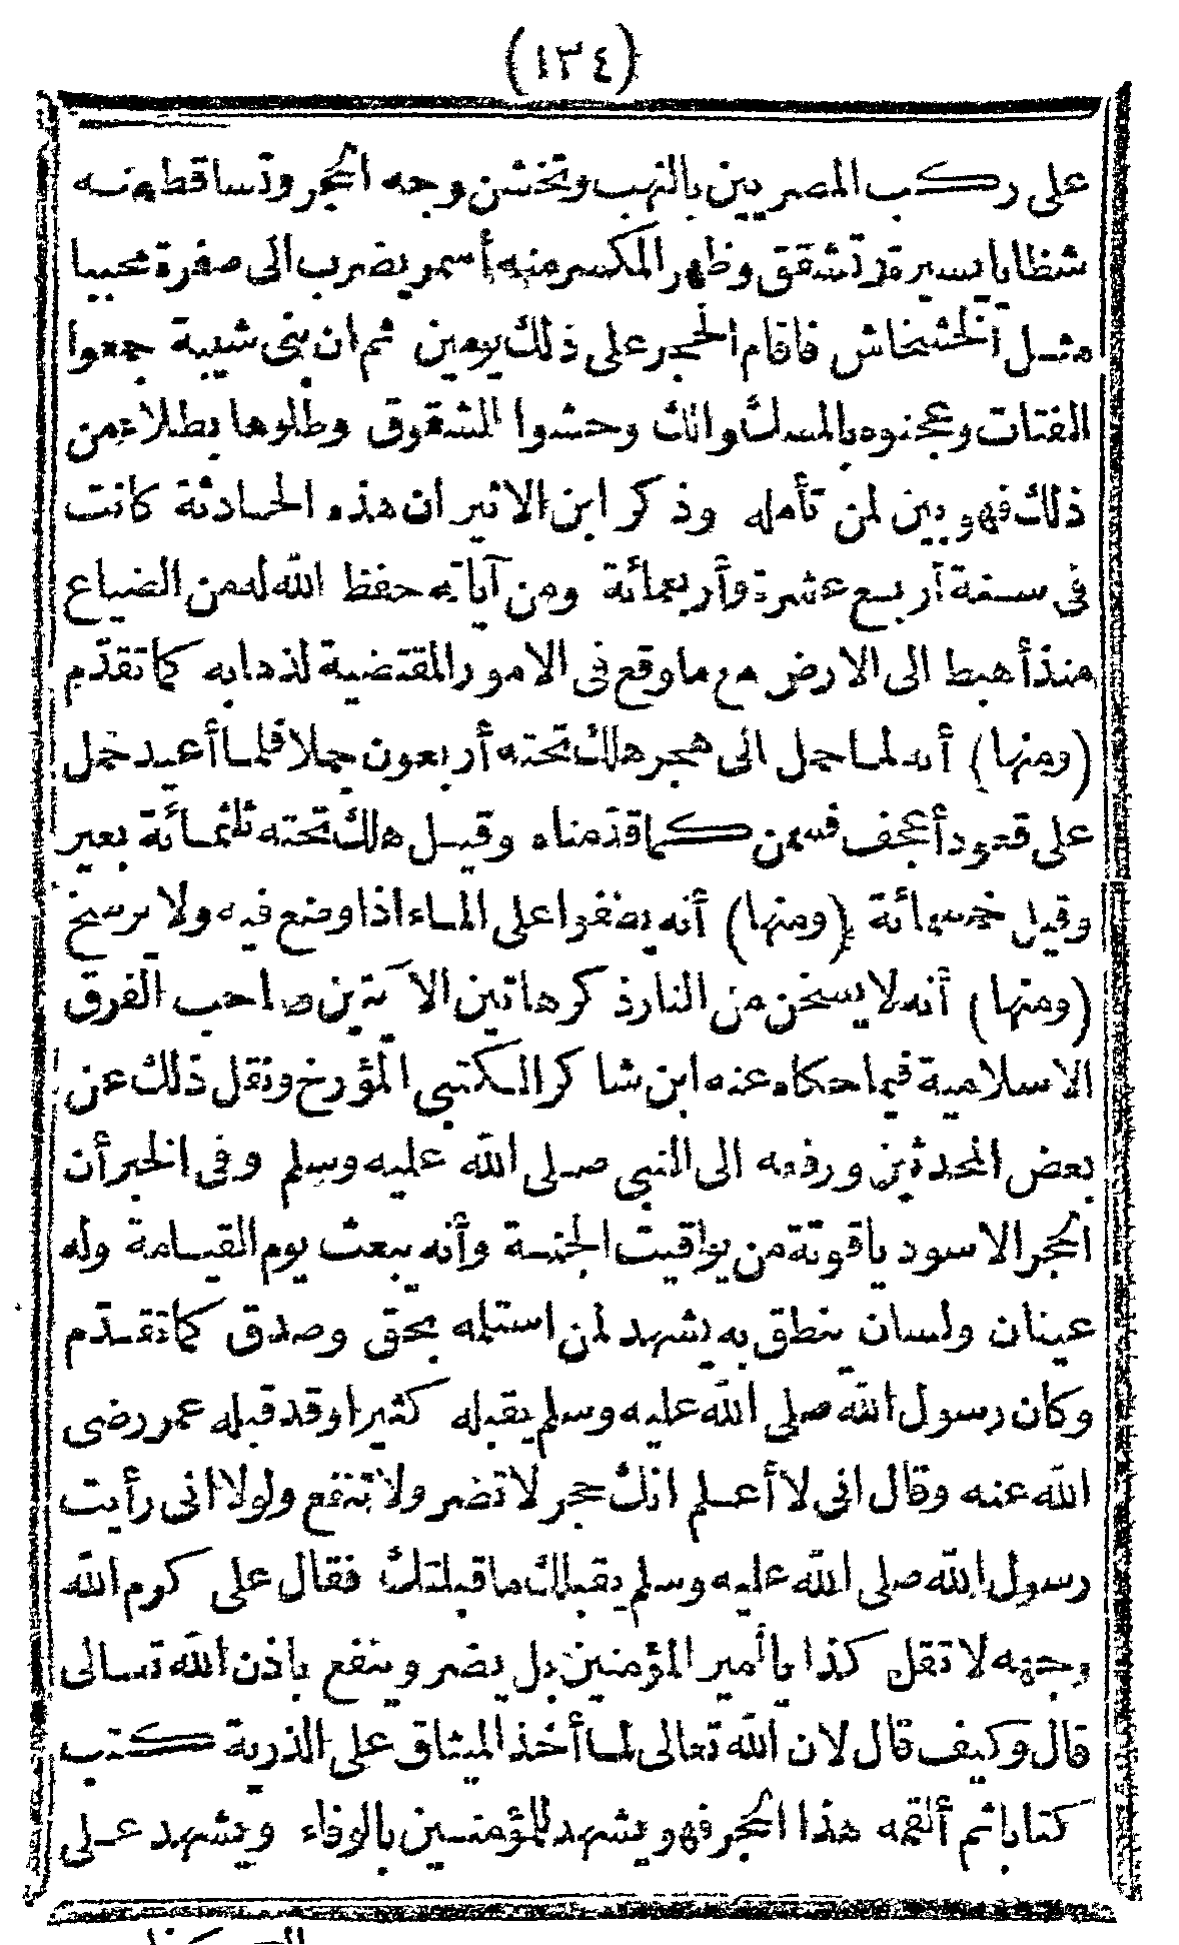 (١٣٤)
على ركب المصريين بالنهب وتخشن وجه الحجر وتساقط منه
شظايا يسيرة وتشقق وظهر المكسر منه أسمر يضرب الى صفرة محببا
مثل الخشخاش فاقام الحجر على ذلك يومين ثم ان بنى شيبة جمعوا
الفتات وعجنوه بالمسك واللك وحشوا الشقوق وطلوها بطلاء من
ذلك فهو بين لمن تأمله وذكر ابن الاثير ان هذه الحادثة كانت
فى سنة أربع عشرة وأربعمائة ومن آياته حفظ الله له من الضياع
منذ أهبط الى الارض مع ما وقع فى الامور المقتضية لذهابه كما تقدّم
(ومنها) أنه لما حمل الى هجر هلك تحته أربعون جملا فلما أعيد حمل
على قعود أعجف فسمن كما قدّمناه وقيل هلك تحته ثلثمائة بعير
وقيل خمسمائة (ومنها) أنه يطفو على الماء اذا وضع فيه ولا يرسخ
(ومنها) أنه لا يسخن من النار ذكر هاتين الآيتين صاحب الفرق
الاسلامية فيما حكاه عنه ابن شاكر الكتبي المؤرخ ونقل ذلك عن
بعض المحدثين ورفعه الى النبي صلى الله عليه وسلم وفى الخبر أن
الحجر الاسود ياقوتة من يواقيت الجنة وأنه يبعث يوم القيامة وله
عينان ولسان ينطق به يشهد لمن استلمه بحق وصدق كما تقدّم
وكان رسول الله صلى الله عليه وسلم يقبله كثيرا وقد قبله عمر رضى
الله عنه وقال انى لا أعلم انك حجر لا تضر ولا تنفع ولولا انى رأيت
رسول الله صلى الله عليه وسلم يقبلك ما قبلتك فقال على كرم الله
وجهه لا تقل كذا يا أمير المؤمنين بل يضر وينفع باذن الله تعالى
قال وكيف قال لان الله تعالى لما أخذ الميثاق على الذرية كتب
كتابا ثم ألقمه هذا الحجر فهو يشهد للمؤمنين بالوفاء ويشهد على